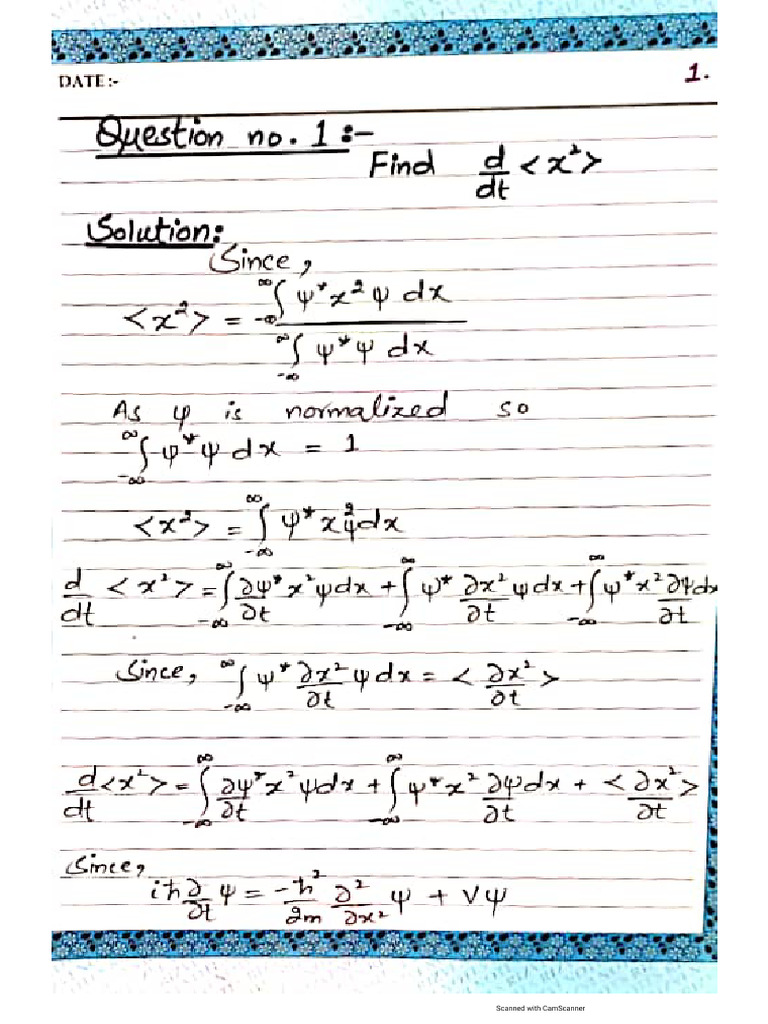 DATE :-
1.
Question no. 1 :-
Find d/dt <x²>
Solution:
Since,
<x²> = ∫_{-∞}^{∞} ψ* x² ψ dx / ∫_{-∞}^{∞} ψ* ψ dx
As ψ is normalized so
∫_{-∞}^{∞} ψ* ψ dx = 1
<x²> = ∫_{-∞}^{∞} ψ* x² ψ dx
d/dt <x²> = ∫_{-∞}^{∞} ∂ψ*/∂t x² ψ dx + ∫_{-∞}^{∞} ψ* ∂x²/∂t ψ dx + ∫_{-∞}^{∞} ψ* x² ∂ψ/∂t dx
Since, ∫_{-∞}^{∞} ψ* ∂x²/∂t ψ dx = <∂x²/∂t>
d/dt <x²> = ∫_{-∞}^{∞} ∂ψ*/∂t x² ψ dx + ∫_{-∞}^{∞} ψ* x² ∂ψ/∂t dx + <∂x²/∂t>
Since,
iħ ∂/∂t ψ = -ħ²/2m ∂²/∂x² ψ + Vψ
Scanned with CamScanner